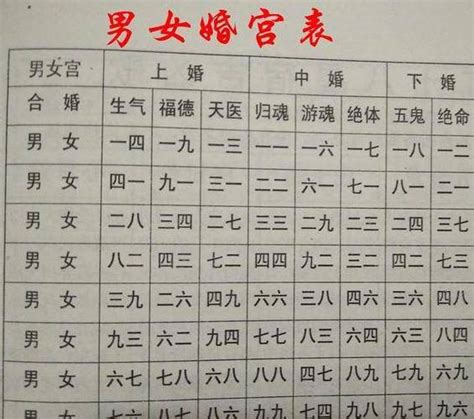 男女婚宫表
男女宫 上婚 中婚 下婚
合婚 生气 福德 天医 归魂 游魂 绝体 五鬼 绝命
男 女 一四 一九 一三 一一 一六 一七 一八 一二
男 女 四一 九一 三一 二二 六一 七一 八一 二一
男 女 二八 三四 二七 三三 二九 二三 二四 三七
男 女 八二 四三 七二 四四 九二 三二 四二 七三
男 女 三九 二六 四九 六六 三八 四六 三六 四八
男 女 九三 六二 九四 七七 八三 六四 六三 八四
男 女 六七 七八 六八 八八 四七 八九 七九 六九
男 女 七六 八七 八六 九九 七四 九八 九七 九六